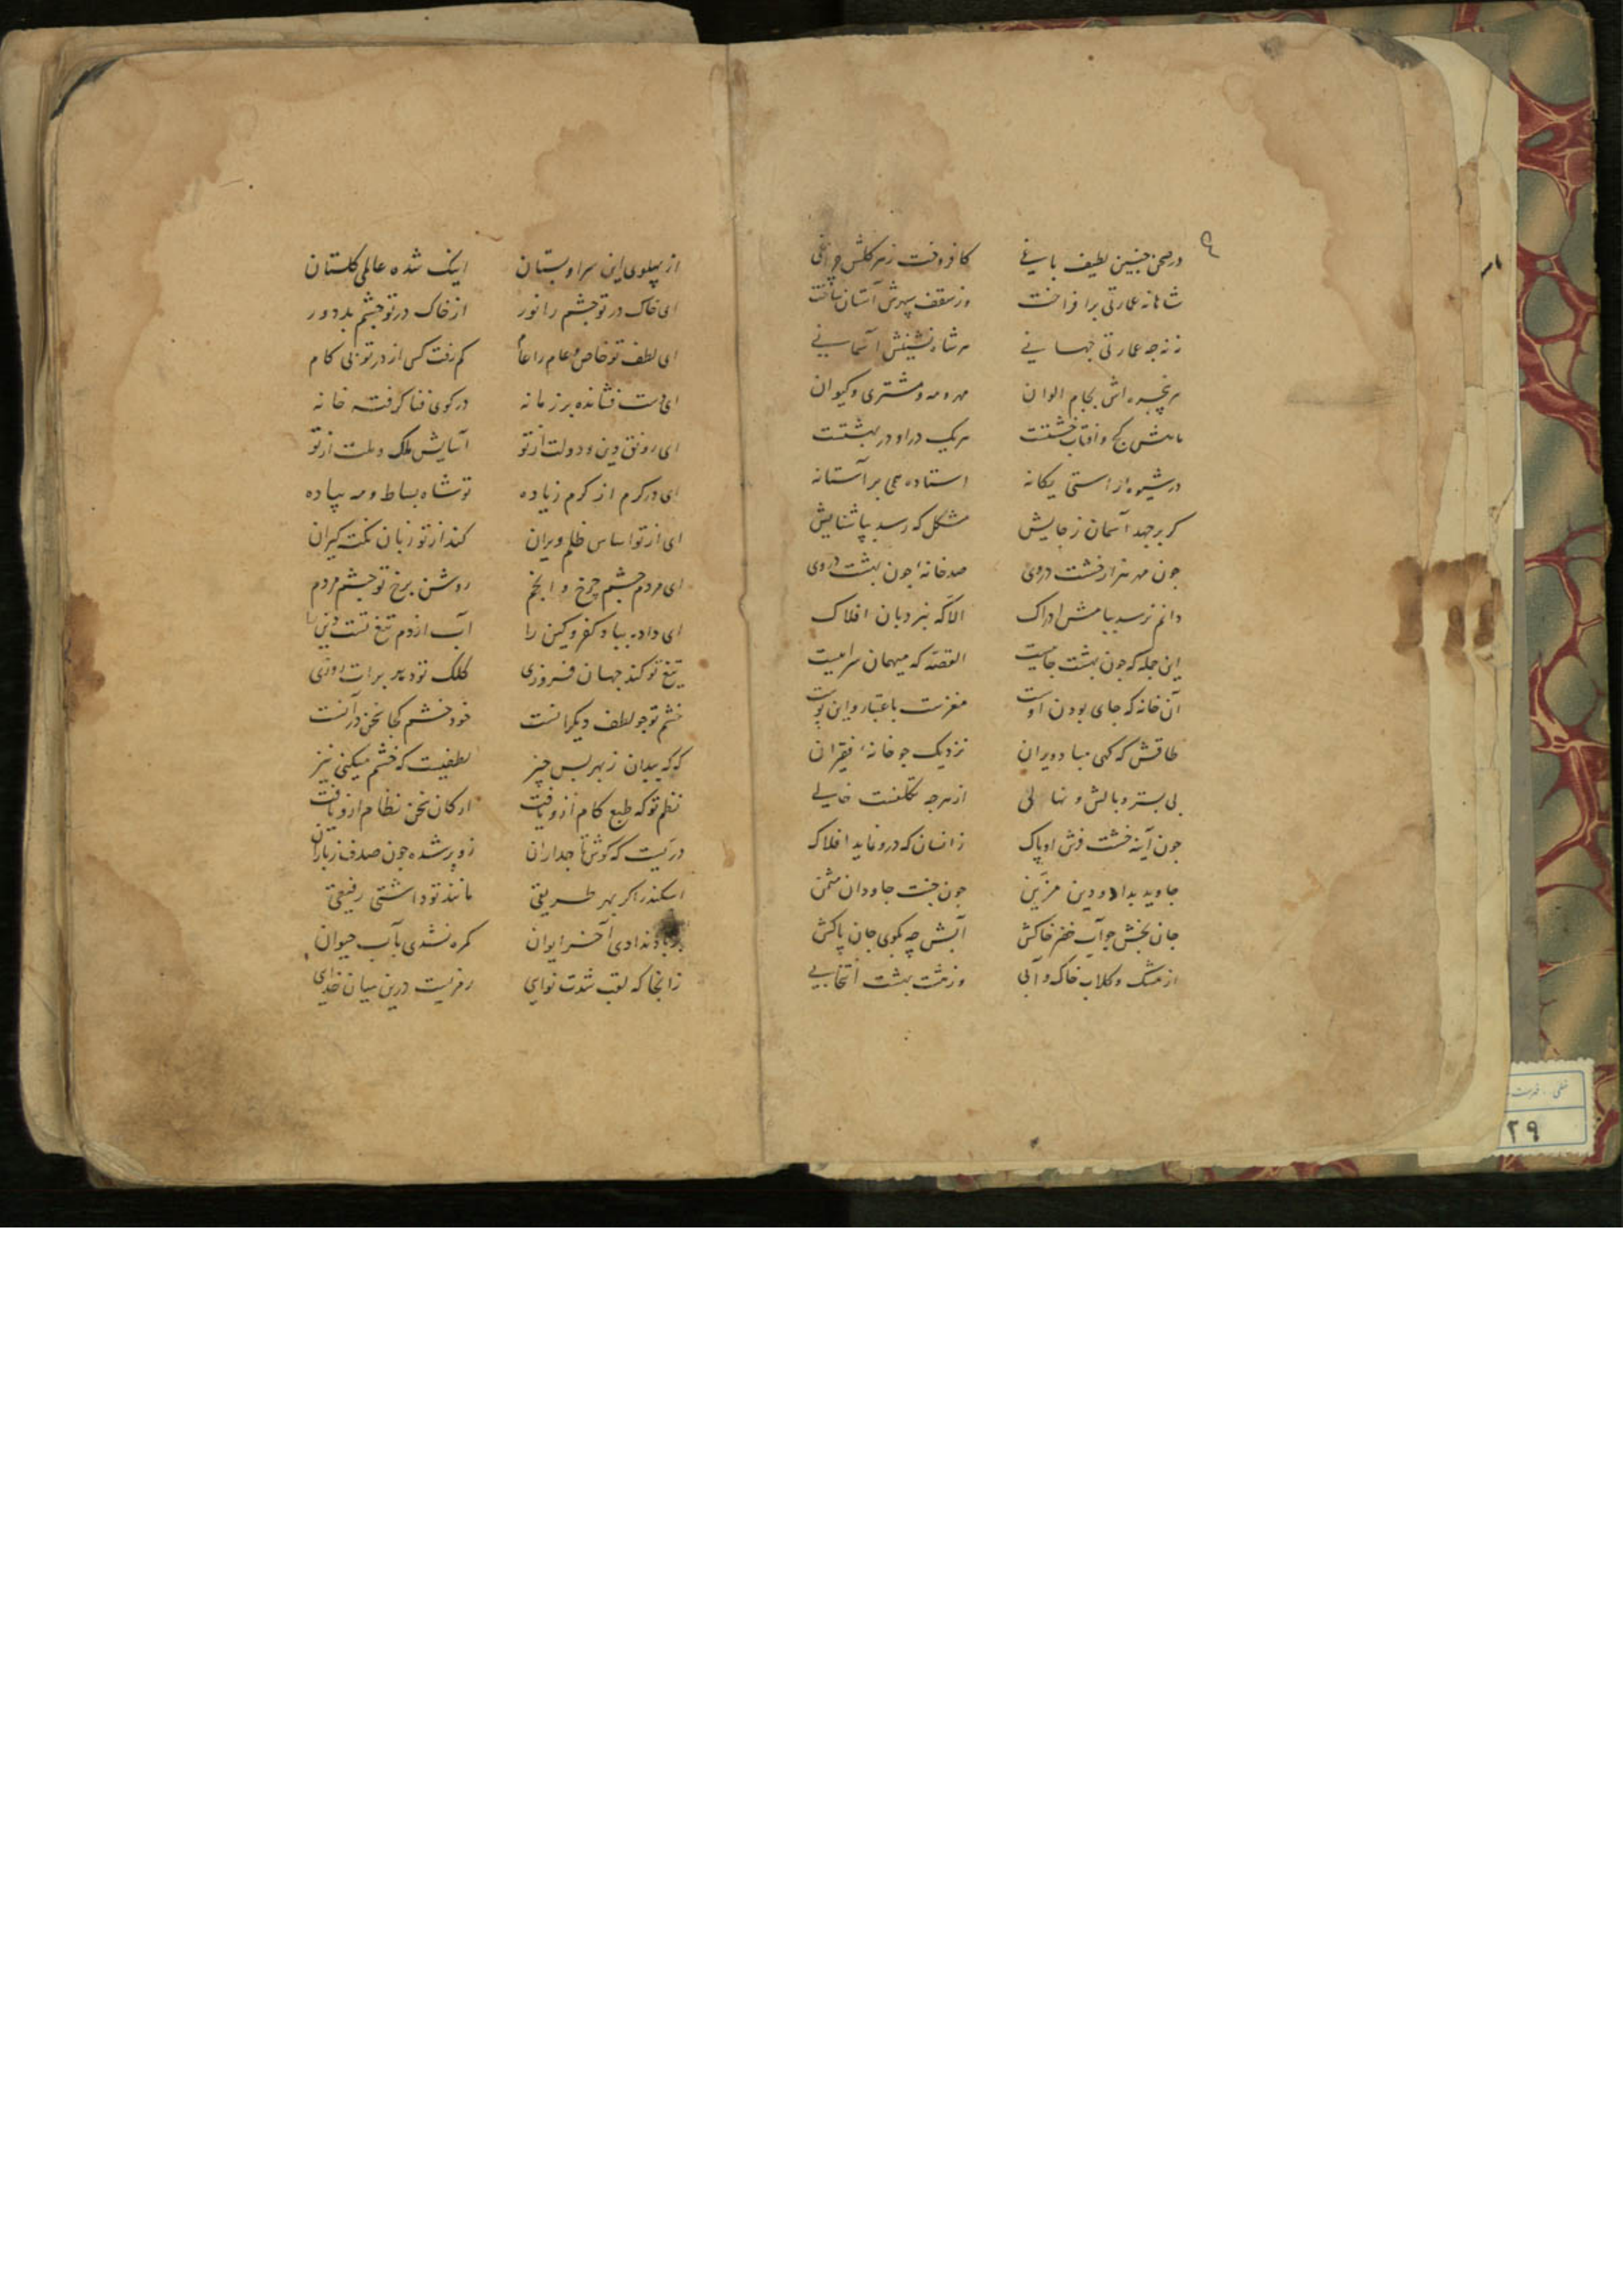 در صحن چنین لطیف باغی کافروخت ز هر گلش چراغی
شاهانه عمارتی برافراخت وز سقف سپهرش آستان ساخت
نه نه چه عمارتی جهانی هر شاه نشینش آسمانی
هر پنجره اش بجام الوان مهر و مه و مشتری و کیوان
ماهش گچ و آفتاب خشتست هر یک در او در بهشتست
در شیوه راستی یگانه استاده همی بر آستانه
گر برجهد آسمان ز جایش مشکل که رسد بپا شنایش
چون مهر هزار خشت در وی صد خانهٔ چون بهشت در وی
دانم نرسد ببامش ادراک الا که بنردبان افلاک
این جمله که چون بهشت جاییست القصّه که میهمان سراییست
آن خانه که جای بودن اوست مغزست باعتبار و این پوست
طاقش که گهی مباد ویران نزدیک چو خانهٔ فقیران
بی بستر و بالش و نهالی از هرچه تکلفست خالی
چون آینه خشت فرش او پاک زانسان که درو نماید افلاک
جاوید بداد و دین مزیّن چون جنت جاودان مثمن
جان بخش چو آب خضر خاکش آبش چه بگوی جان پاکش
از مشک و گلاب خاک و آبی وز هشت بهشت انتخابی
از پهلوی این سرا و بستان اینک شده عالمی گلستان
ای خاک در تو چشم را نور از خاک در تو چشم بد دور
ای لطف تو خاص و عام را عام کم رفت کس از در تو بی کام
ای دست فشانده بر زمانه در کوی فنا گرفته خانه
ای رونق دین و دولت از تو آسایش ملک و ملت از تو
ای در کرم از کرم زیاده تو شاه بساط و مه پیاده
ای از تو اساس ظلم ویران کند از تو زبان نکته گیران
ای مردم چشم چرخ و انجم روشن برخ تو چشم مردم
ای داده بباد کفر و کین را آب از دم تیغ تست دین را
تیغ تو کند جهان فروزی کلک تو دهد برات روزی
خشم تو چو لطف دیگرانست خود خشم کجا سخن در آنست
که که ببدان ز بهر بس چیز لطفیست که خشم میکنی نیز
نظم تو که طبع کام ازو یافت ارکان سخن نظام ازو یافت
دریست که گوش تاجداران زو پر شده چون صدف ز باران
اسکندر اگر بهر طریقی مانند تو داشتی رفیقی
بر باد ندادی آخر ایوان گمره نشدی بآب حیوان
زانجا که لقب شدت نوایی رمزیست درین میان خدایی
۲۹